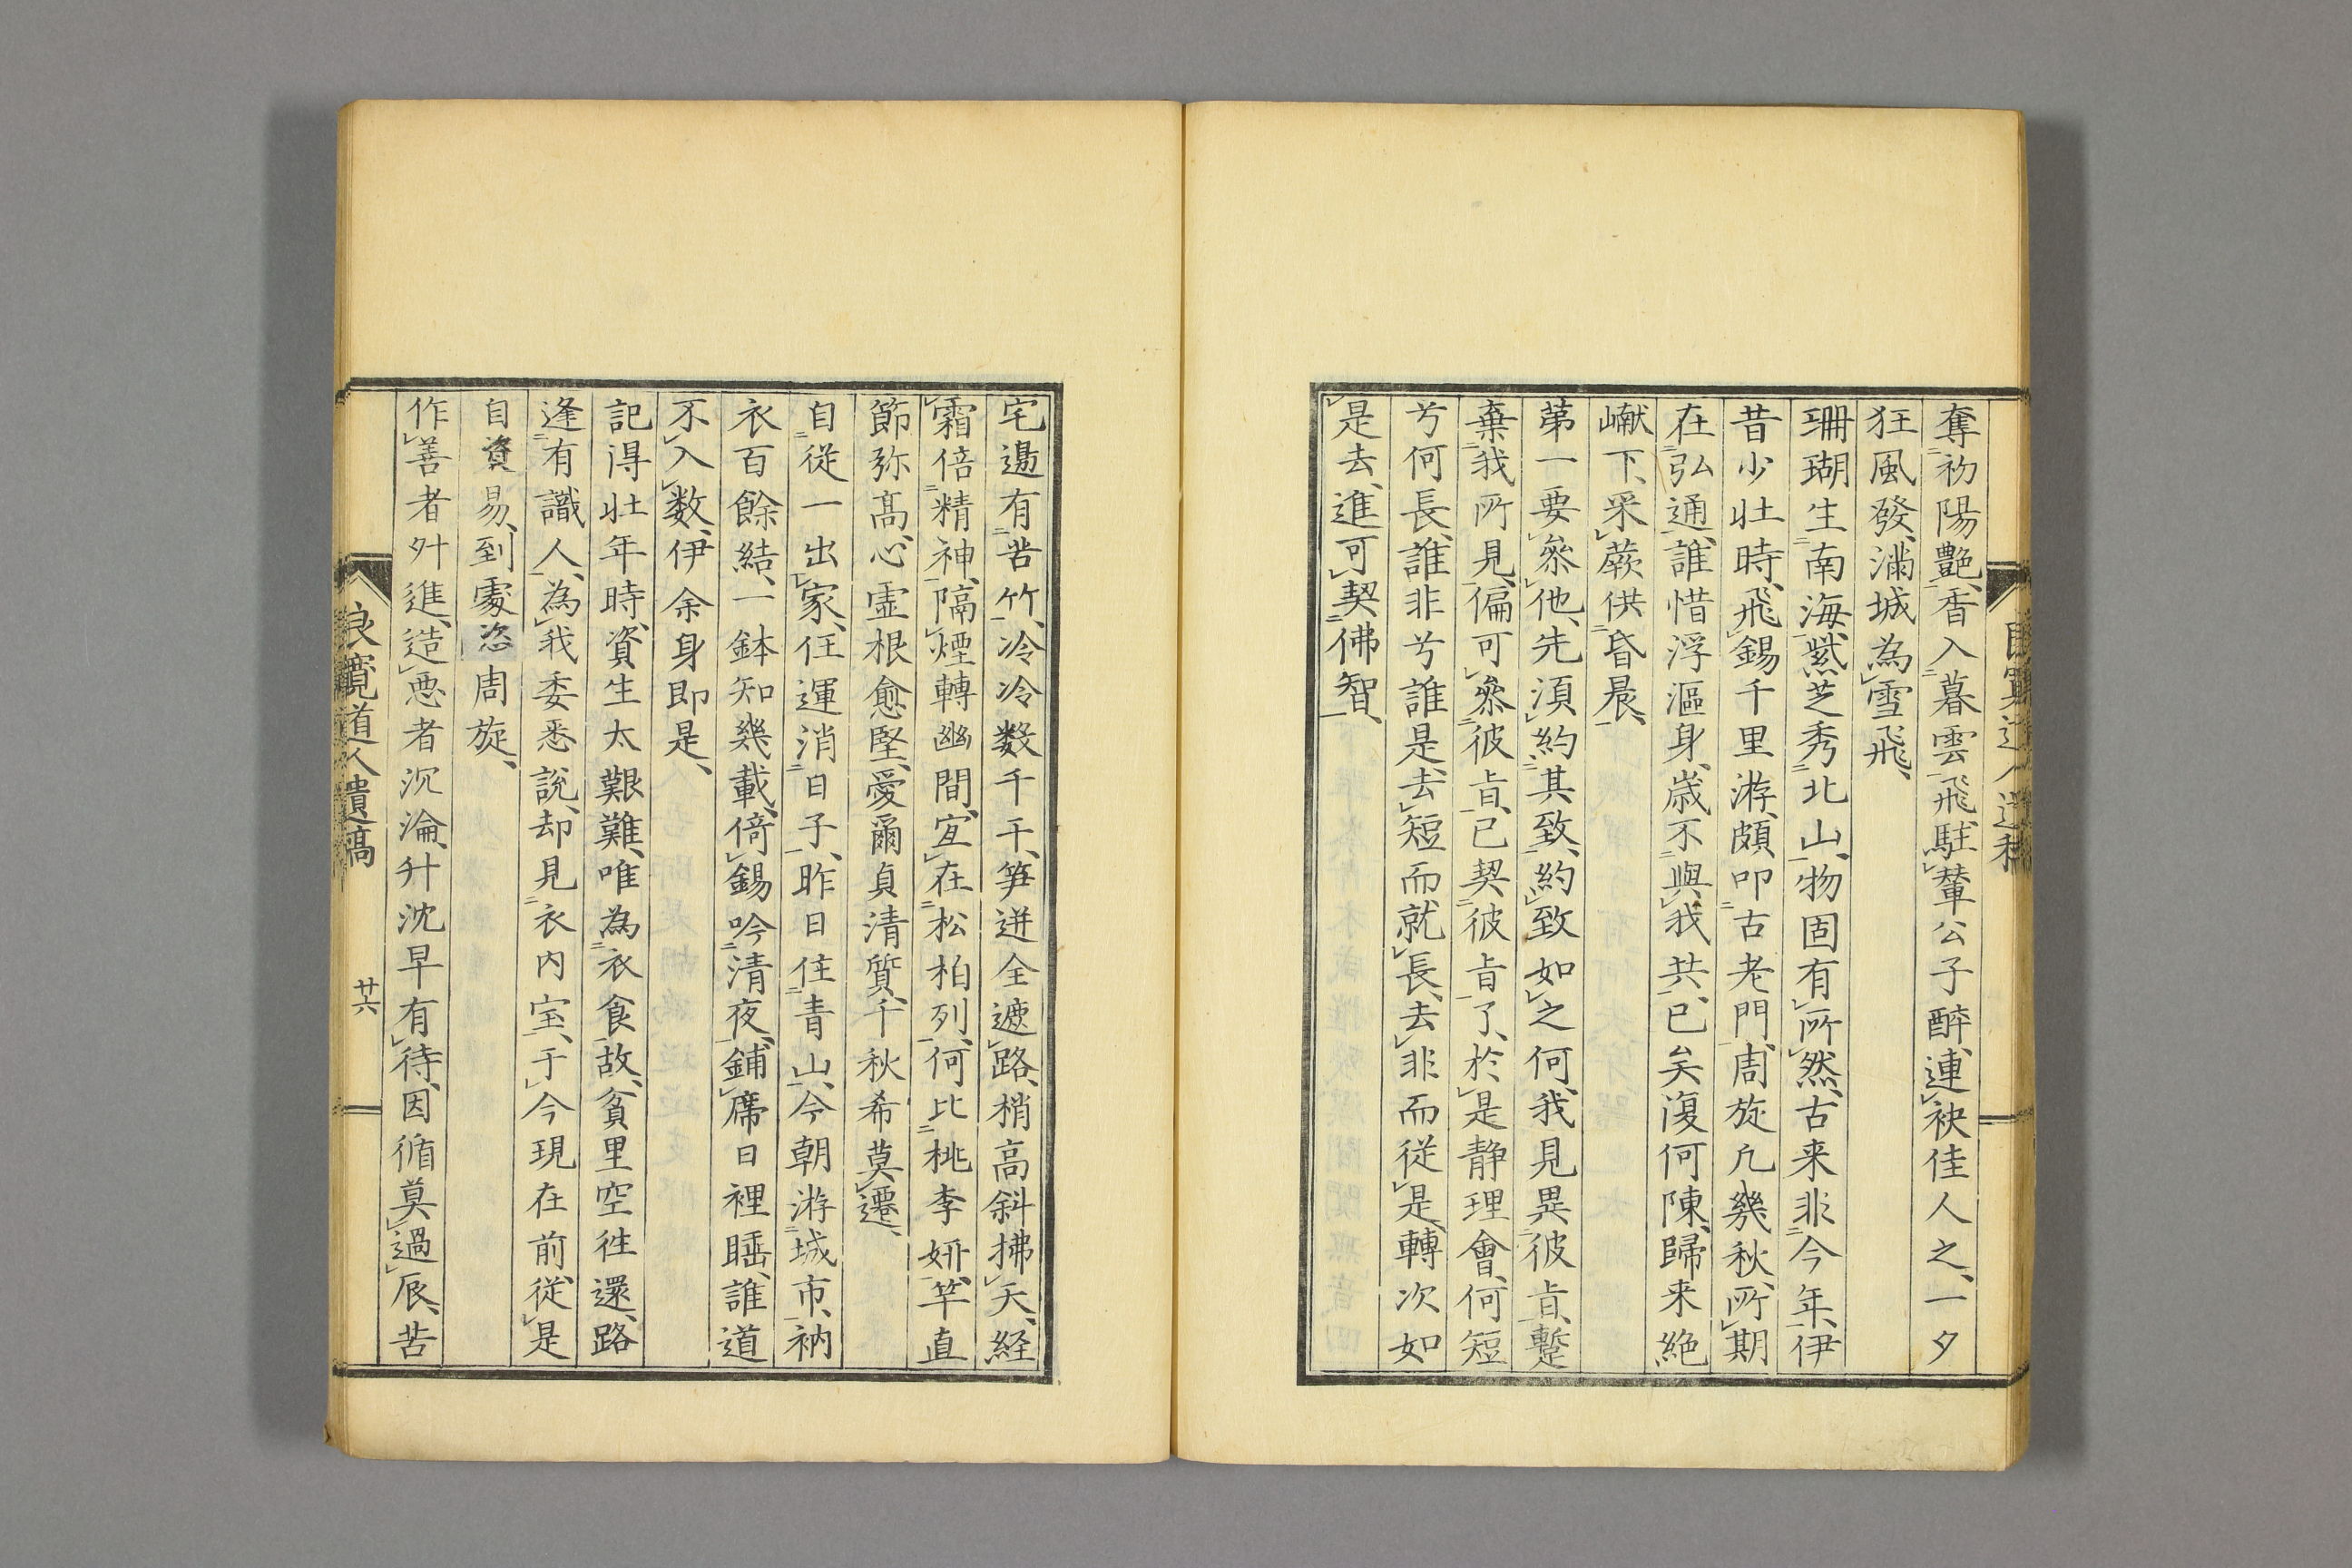 奪初陽艶、香入暮雲飛、駐輦公子醉、連袂佳人之、一夕
狂風發、滿城為雪飛、
珊瑚生南海、紫芝秀北山、物固有所然、古来非今年、伊
昔少壮時、飛錫千里游、頗叩古老門、周旋凡幾秋、所期
在弘通、誰惜浮漚身、歳不與我共、已矣復何陳、歸来絶
巘下、采蕨供昏晨、
第一要參他、先須約其致、約致如之何、我見異彼旨、蹔
棄我所見、偏可參彼旨、已契彼旨了、於是静理會、何短
兮何長、誰非兮誰是、去短而就長、去非而従是、轉次如
是去、進可契佛智、
宅邉有苦竹、冷冷数千干、笋迸全遮路、梢高斜拂天、経
霜倍精神、隔煙轉幽間、宜在松柏列、何比桃李妍、竿直
節弥髙、心虚根愈堅、愛爾貞清質、千秋希莫遷、
自従一出家、任運消日子、昨日住青山、今朝游城市、衲
衣百餘結、一鉢知幾載、倚錫吟清夜、鋪席日裡睡、誰道
不入数、伊余身即是、
記得壮年時、資生太艱難、唯為衣食故、貧里空徃還、路
逢有識人、為我委悉説、却見衣内宝、于今現在前、従是
自資易、到處恣周旋、
作善者升進、造悪者沉淪、升沈早有待、因循莫過辰、苦
良寛道人遺稿
廿六